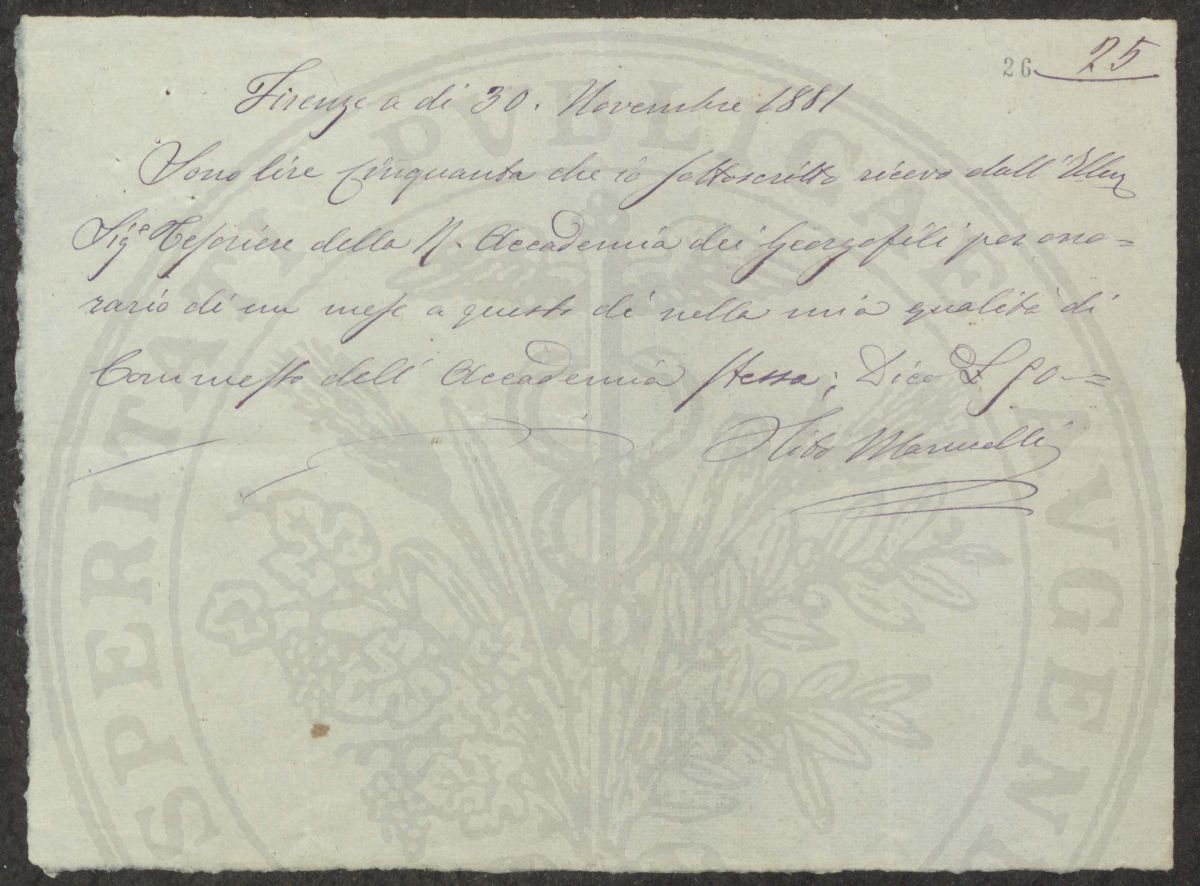 26 25
Firenze a dì 30. Novembre 1881
Sono lire Cinquanta che io sottoscritto ricevo dall'
Sigre Tesoriere della R. Accademia dei Georgofili per ono=
rario di un mese a questo dì nella mia qualità di
Commesso dell' Accademia stessa; Dico £ 50—=
Marucelli
PROSPERITATI PVBLICAE AVGENDAE